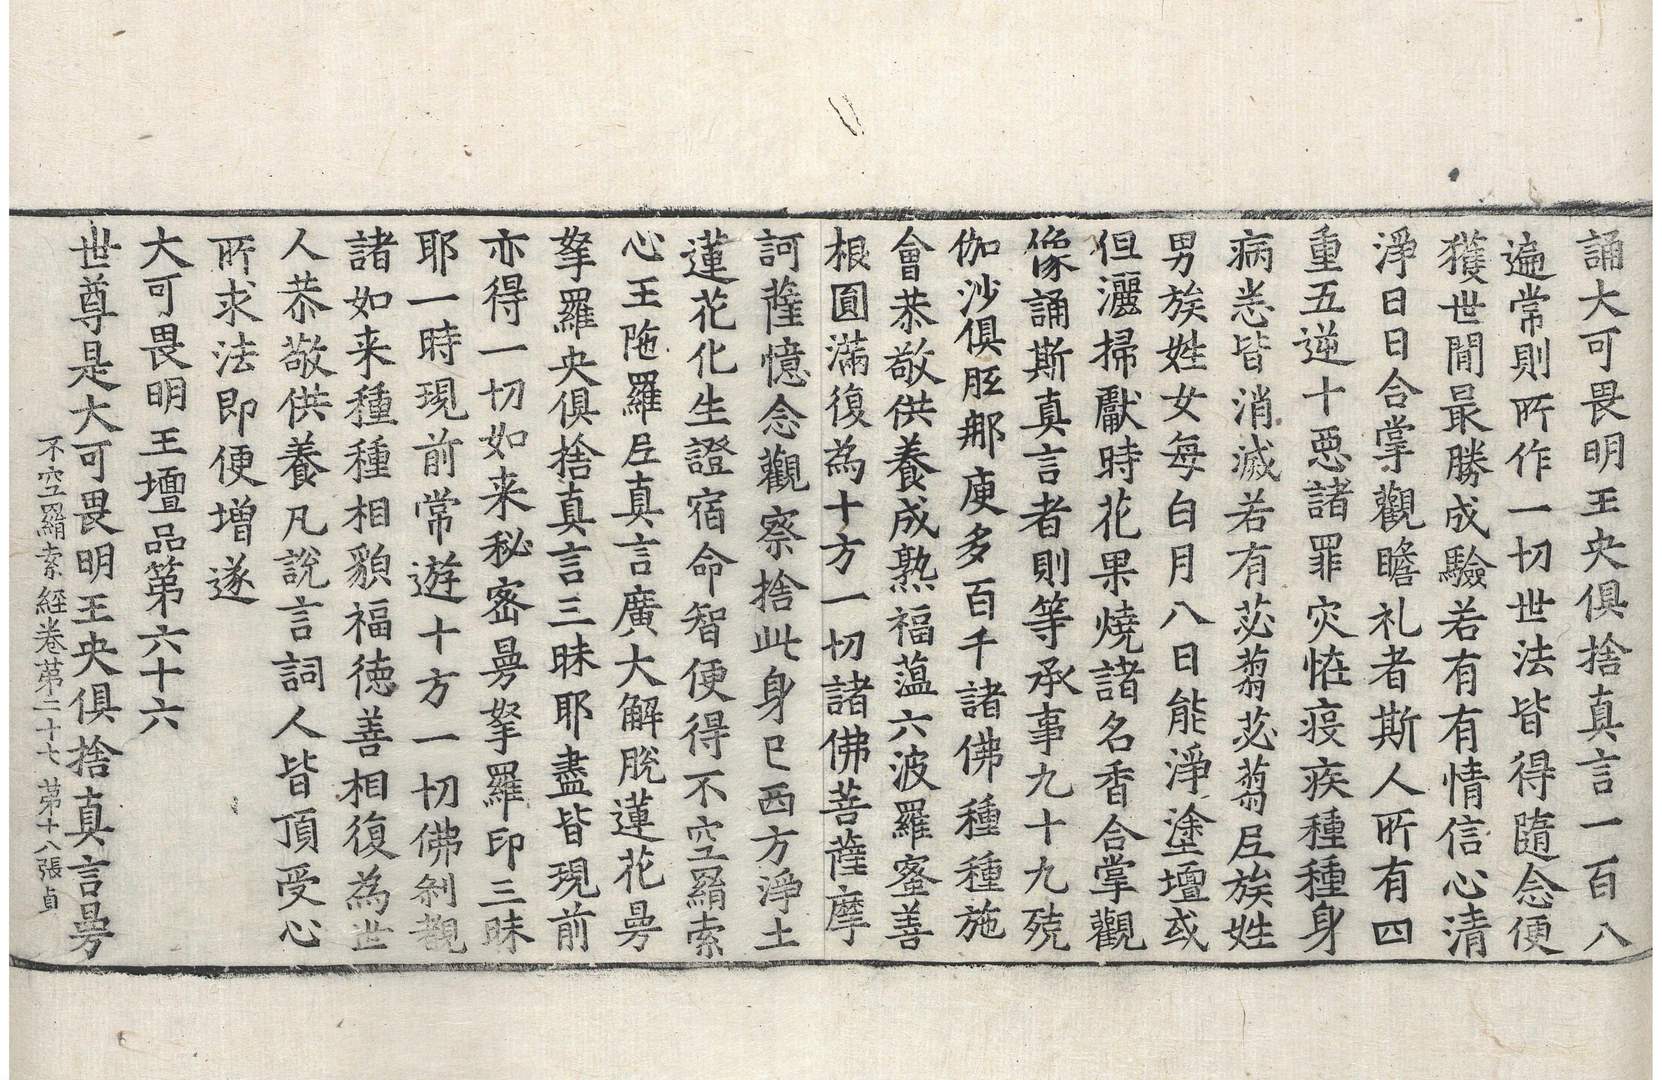 誦大可畏明王央俱捨真言一百八
遍常則所作一切世法皆得隨念便
獲世間最勝成驗若有有情信心清
淨日日合掌觀瞻礼者斯人所有四
重五逆十惡諸罪灾恠疫疾種種身
病恙皆消滅若有苾蒭苾蒭尼族姓
男族姓女每白月八日能淨塗壇或
但灑掃獻時花果燒諸名香合掌觀
像誦斯真言者則等承事九十九殑
伽沙俱胝那庾多百千諸佛種種施
會恭敬供養成熟福蕰六波羅蜜善
根圓滿復為十方一切諸佛菩薩摩
訶薩憶念觀察捨此身已西方淨土
蓮花化生證宿命智便得不空羂索
心王陁羅尼真言廣大解脫蓮花曼
拏羅央俱捨真言三昧耶盡皆現前
亦得一切如来秘密曼拏羅印三昧
耶一時現前常遊十方一切佛剎觀
諸如来種種相貌福德善相復為世
人恭敬供養凡說言詞人皆頂受心
所求法即便增遂
大可畏明王壇品第六十六
世尊是大可畏明王央俱捨真言曼
不空羂索經卷第二十七 第十八張 貞